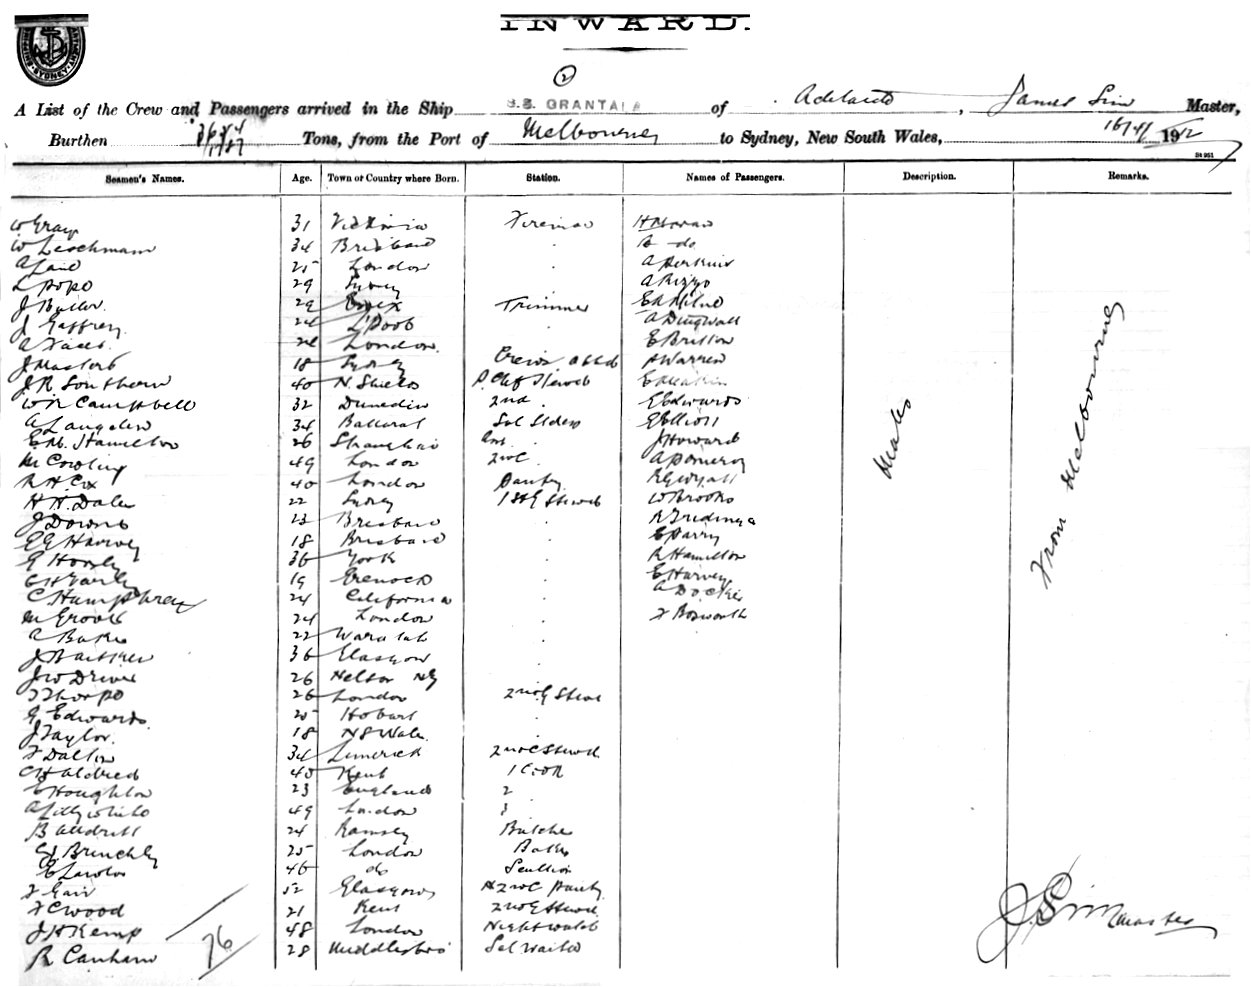 INWARD.
2
A List of the Crew and Passengers arrived in the Ship S.S. GRANTALA of Adelaide, James Sim Master,
Burthen Tons, from the Port of Melbourne to Sydney, New South Wales, 16/4/ 1912
St 951
Seamen's Names. Age. Town or Country where Born. Station. Names of Passengers. Description. Remarks.
W Gray 31 Victoria Fireman H Moran
W Leschmann 34 Brisbane do
A Laid 25 London A Perkins
L Popo 29 Sydney A Rizzo
J Butler 29 Essex Trimmer E A Milne
J Gaffney 24 L'Pool A Dingwall
A Fates 24 London E Britton
J Masters 18 Sydney Crews Warren
J R Southern 40 N. Shields
W R Campbell 32 Dunedin 2nd E Edwards
A Langdon 34 Ballarat E Elliott
E M. Hamilton 26 Shanghai J Howard
M Cowling 49 London 2nd C A Pomeroy
R H Cox 40 London Pantry R G Wyatt
H H. Dale 22 Sydney 1st G Steward W Brooks
J Downs 23 Brisbane
E G Harvey 18 Brisbane E Parry
G Hornby 36 York R Hamilton
19 Grenock E Harvey
C Humphrey 24 California A Docker
M Groves 24 London F Bosworth
A Baker 22 Waratah
J 36 Glasgow
J W Driver 26 Nelson NZ
T Thorpe 26 London 2nd G Stew
G Edwards 25 Hobart
J Taylor 18 N S Wales
F Dalton 34 Limerick 2nd C Steward
C H Aldred 40 Kent 1 Cook
E Houghton 23 England 2
A Lillywhite 49 London 3
B Alldritt 24 Ramsey Butcher
G J Brinchley 25 London Baker
E Lawlor 46 do Scullion
F Gair 52 Glasgow 2nd C Pantry
F C Wood 21 Kent 2nd G Steward
J H Kemp 48 London Nightwatch
R Canham 28 Middlesbro Sal Waiter
76
Males
From Melbourne
J. Sim Master